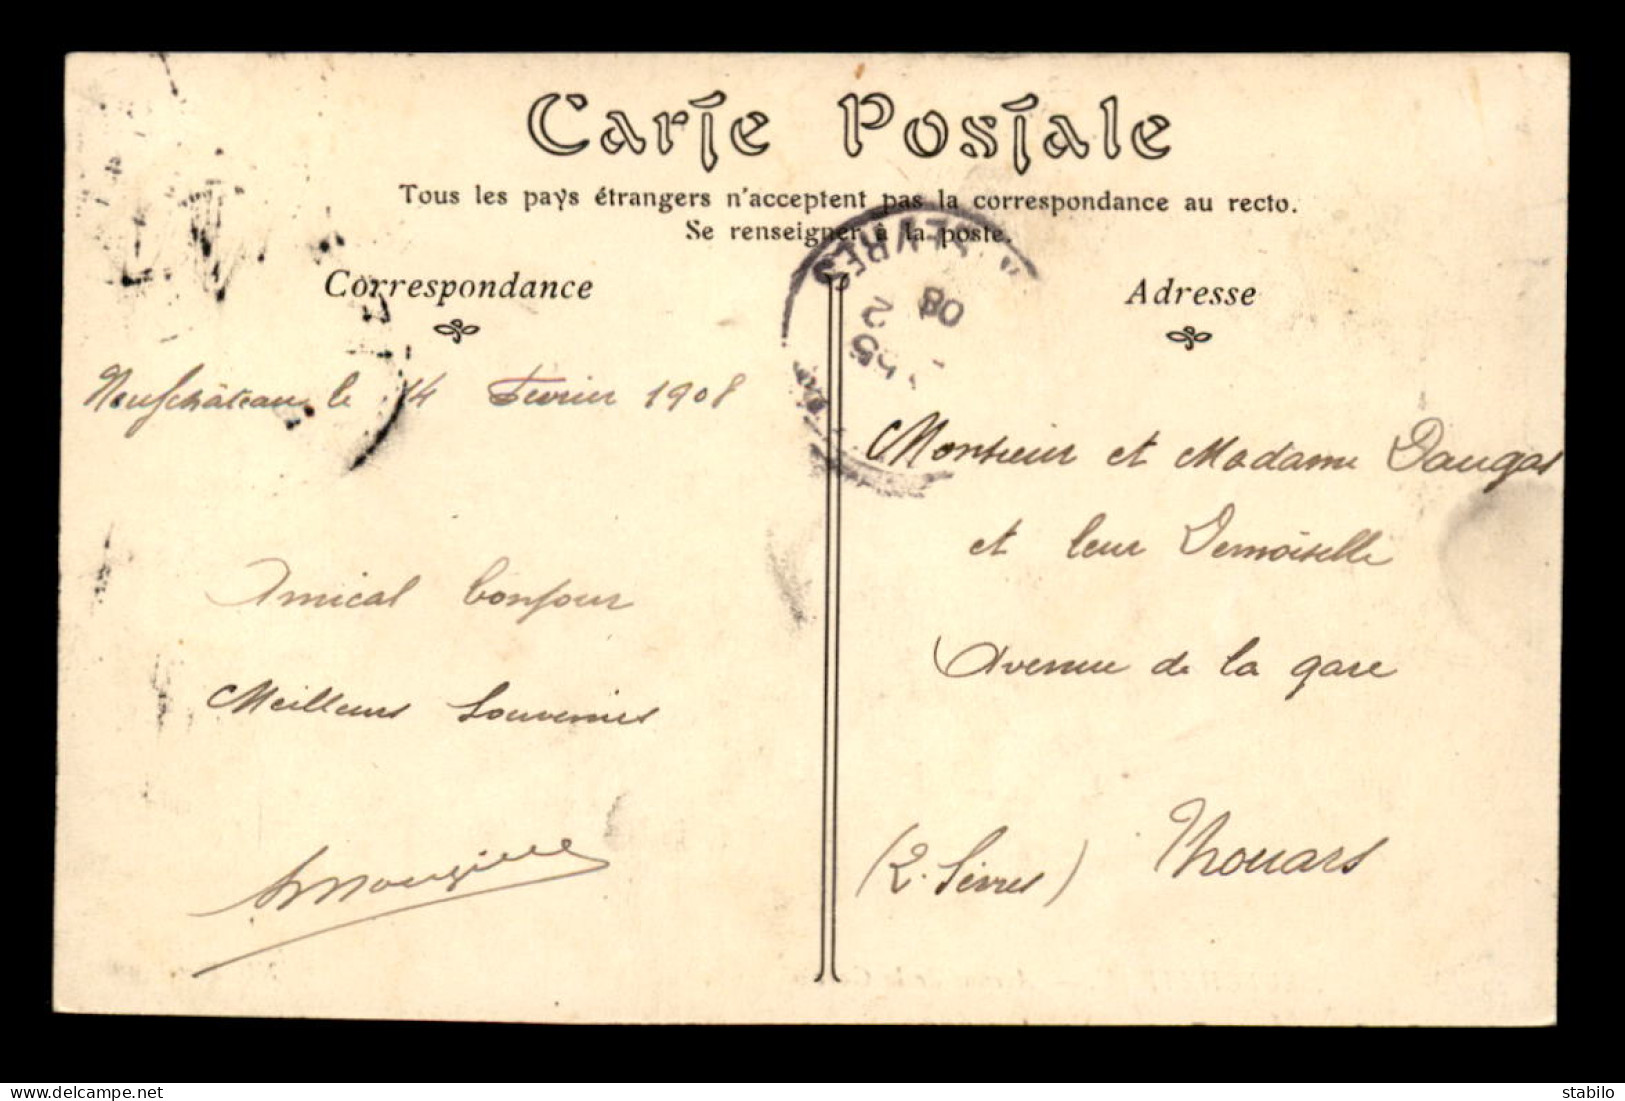 Carte Postale
Tous les pays étrangers n'acceptent pas la correspondance au recto.
Se renseigner à la poste.
Correspondance
Neufchâteau le 14 Février 1908
Amical bonjour
Meilleurs Souvenirs
Adresse
SEVRES
2
08
Monsieur et Madame Daugas
et leur Demoiselle
Avenue de la gare
(2. Sèvres) Thouars
delcampe.net
stabilo